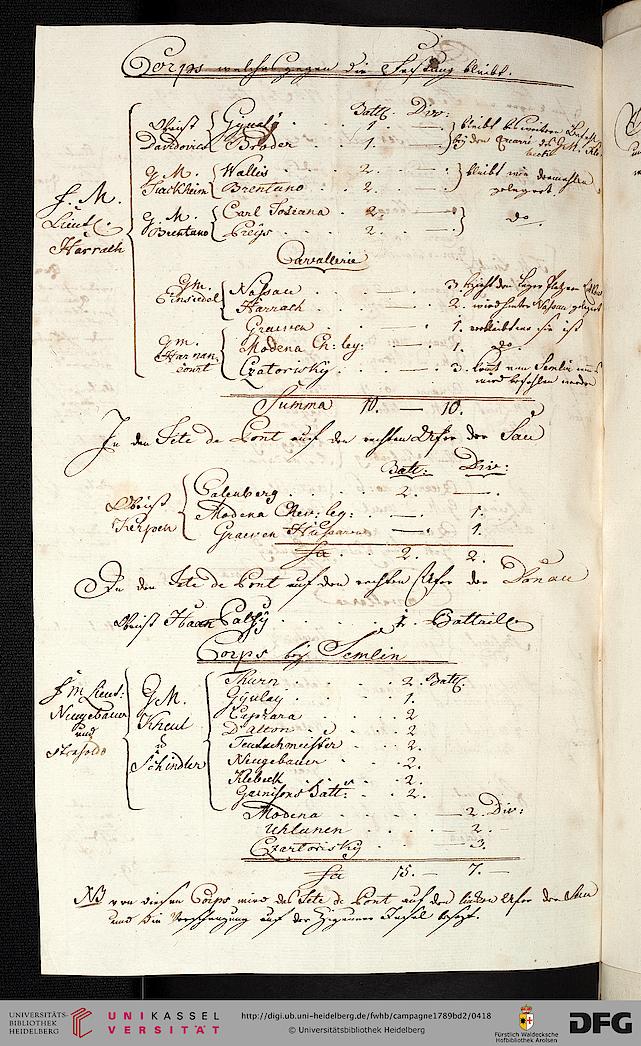 Corps welches gegen die Festung bleibt.
Battl. Div:
Obrist Davidovics Gyualy . . . 1. —
Broder . . . 1. —
bleibt bis weitere
bey dem Quarré des G.M.
G. M. Stackheim Wallis . . . 2. —
Brentano . . . 2. —
bleibt wie dermahlen
gelagert.
F. M. Lieut. Harrach
G. M. Brentano Carl Toscana . . 2. —
Preyss . . . 2. —
do.
Cavallerie
G.M. Einsiedel Nassau . . . — . 3.
Harrach . . . — . 2. wird hinter Nassau
Graeven . . . — . 1. verbleibt wo sie ist
G.M. Harnoncourt Modena Ch: leg: — . 1. do
Czatorisky . . . — . 3. kömt von Semlin
wird befohlen werden
Summa 10. — 10.
In den Tete de Pont auf den rechten Ufer der Sau
Batt: Div:
Obrist Kerpen Calenberg . . . 2. — .
Modena Chev: leg: — . 1.
Graeven Hussaren — . 1.
Sa . 2. 2.
In den Tete de Pont auf den rechten Ufer der Donau
Obrist Haan Palfy . . . . 1. Bataille
Corps bey Semlin
F M Lieut: Neugebauer und
G. M. Kheul u Schindler
Thurn . . . 2. Battl.
Gyulay . . . 1.
Caprara . . . 2
D'alton . . . 2
Teutschmeister . . 2.
Neugebauer . . 2.
Klebeck . . . 2.
Garnisons Batt: . . 2.
Modena . . . — 2. Div:
Uhlanen . . . — 2. —
Czartorisky . . . 3.
Sa 15. — 7. —
NB von diesem Corps wird das Tete de Pont auf den linken Ufer der Sau
und die Verschanzung auf der Zigeuner Insel besezt.
UNIVERSITÄTS-
BIBLIOTHEK
HEIDELBERG
UNIKASSEL
VERSITÄT
http://digi.ub.uni-heidelberg.de/fwhb/campagne1789bd2/0418
© Universitätsbibliothek Heidelberg
Fürstlich Waldecksche
Hofbibliothek Arolsen
DFG